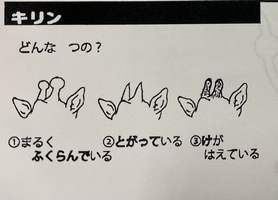 キリン
どんな つの？
①まるく ②とがっている ③けが
ふくらんでいる はえている